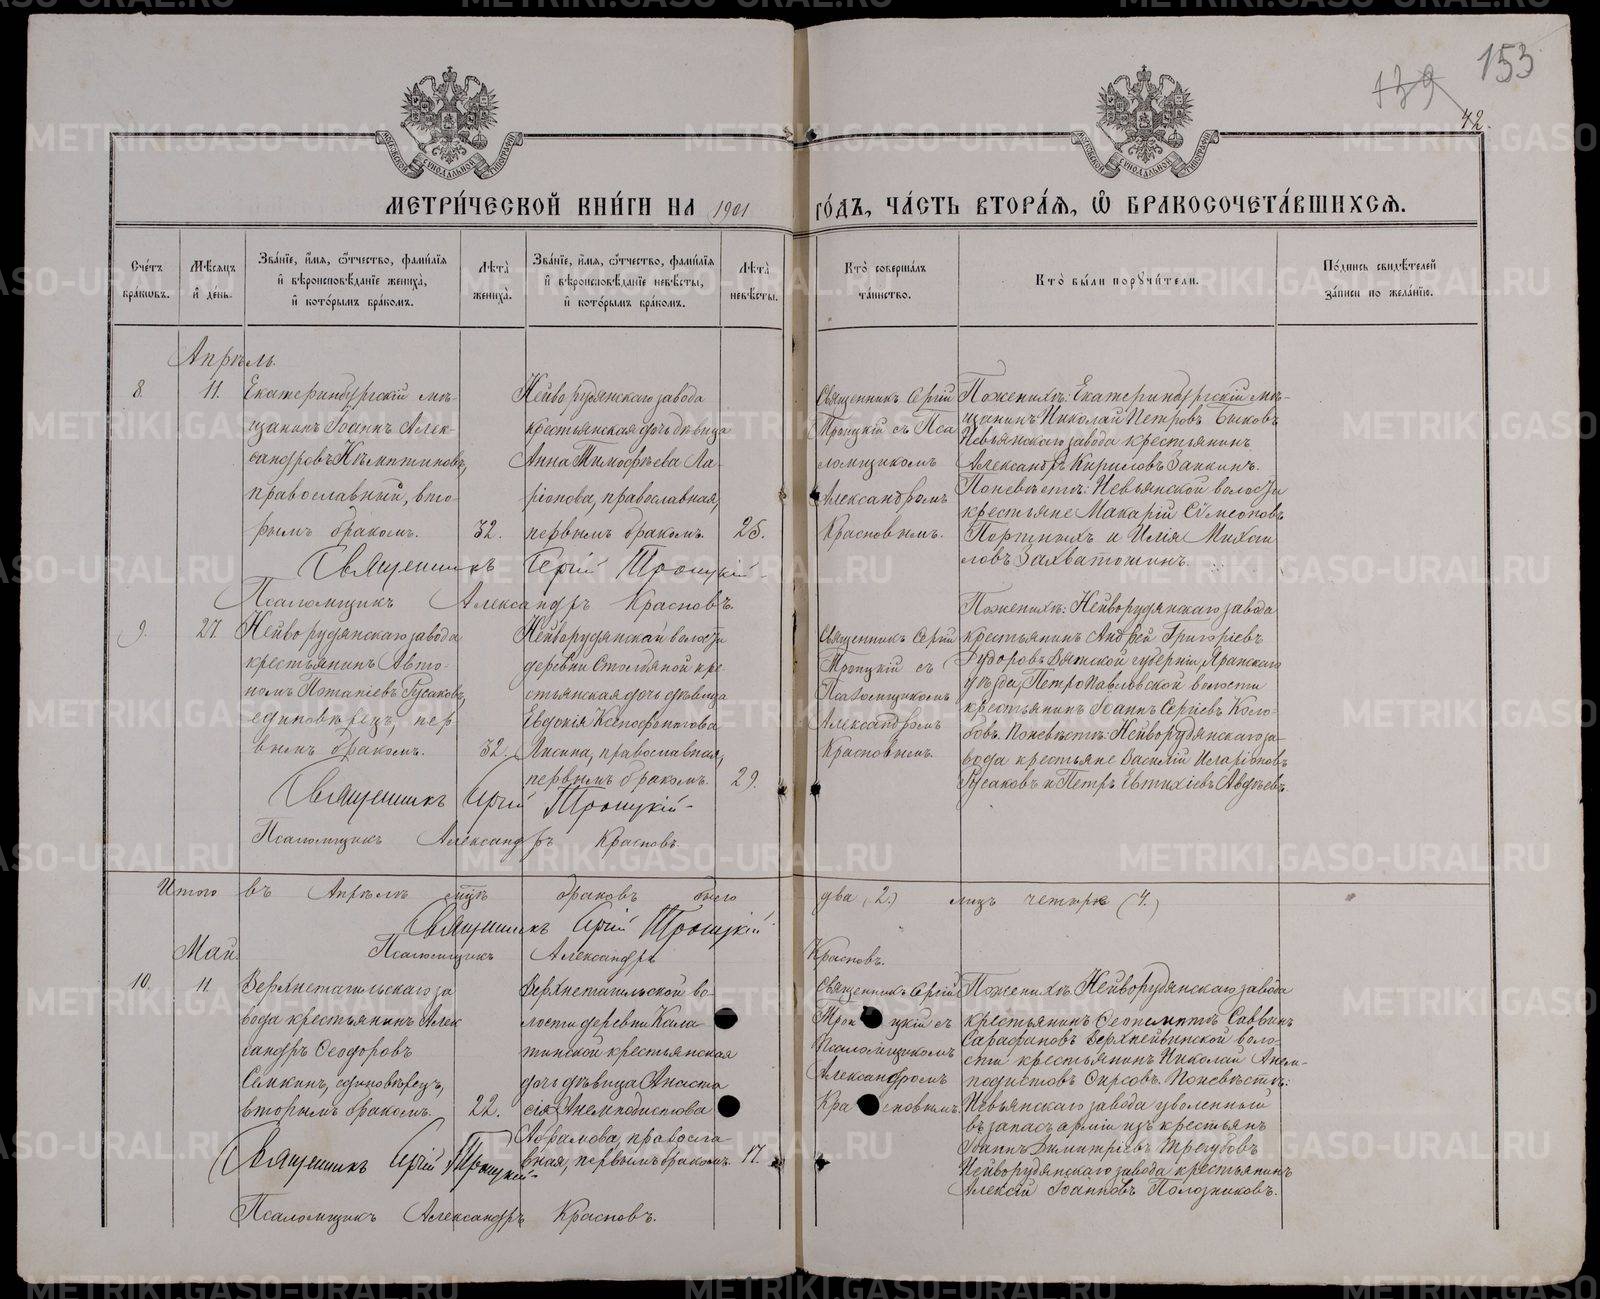 153
139
42.
МЕТРИ́ЧЕСКОЙ КНИ́ГИ НА 1901 ГО́ДЪ, ЧА́СТЬ ВТОРА́Я, Ѽ БРАКОСОЧЕТА́ВШИХСЯ.
Сче́тъ браковъ.
Мѣсяцъ и҆ де́нь.
Зва́нїе, и҆́мя, ѻ҆́тчество, фами́лїя
и҆ вѣроисповѣ́данїе жениха̀,
и҆ кото́рымъ бра́комъ.
Лѣта̀ жениха̀.
Зва́нїе, и҆́мя, ѻ҆́тчество, фами́лїя
и҆ вѣроисповѣ́данїе невѣ́сты,
и҆ кото́рымъ бра́комъ.
Лѣта̀ невѣ́сты.
Кто̀ соверша́лъ
та́инство.
Кто̀ бы́ли порꙋчи́тели.
По́дпись свидѣ́телей
за́писи по жела́нїю.
Апрѣль.
8.
11.
Екатеринбургскій мѣ-
щанинъ Іоаннъ Алек-
сандровъ Клыптиновъ,
православный, вто-
рымъ бракомъ.
32.
Нейворудянскаго завода
крестьянская дочь дѣвица
Анна Тимофѣева Ла-
ріонова, православная,
первымъ бракомъ.
25.
Священникъ Сергій
Троицкій съ Пса
ломщикомъ
Александромъ
Красновымъ.
По женихѣ: Екатеринбургскій мѣ-
щанинъ Николай Петровъ Быковъ
Невьянскаго завода крестьянинъ
Александръ Кириловъ Заикинъ.
По невѣстѣ: Невьянской волости
крестьяне Макарій Сѵмеоновъ
Портныхъ и Илія Михаи
ловъ Захватошинъ.
Священникъ Сергій Троицкій
Псаломщикъ Александръ Красновъ.
9.
27.
Нейворудянскаго завода
крестьянинъ Авто-
номъ Потапіевъ Русаковъ,
единовѣрецъ, пер-
вымъ бракомъ.
32.
Нейворудянской волости
деревни Столбяной кре-
стьянская дочь дѣвица
Евдокія Ксенофонтова
Лисина, православная,
первымъ бракомъ.
29.
Священникъ Сергій
Троицкій съ
Псаломщикомъ
Александромъ
Красновымъ.
По женихѣ: Нейворудянскаго завода
крестьянинъ Андрей Григоріевъ
Ѳудоровъ Вятской губерніи, Яранскаго
уѣзда, Петропавловской волости
крестьянинъ Іоаннъ Сергіевъ Коло-
бовъ. По невѣстѣ: Нейворудянскаго за-
вода крестьяне Василій Иларіоновъ
Русаковъ и Петръ Евтихіевъ Авдѣевъ.
Священникъ Сергій Троицкій
Псаломщикъ Александръ Красновъ.
Итого въ Апрѣлѣ мцѣ браковъ было два (2.) лицъ четыре (4.)
Священникъ Сергій Троицкій
Псаломщикъ Александръ Красновъ.
Май
10.
11.
Верхнетагильскаго за
вода крестьянинъ Алек
сандръ Ѳеодоровъ
Сёмкинъ, единовѣрецъ,
вторымъ бракомъ.
22.
Верхнетагильской во-
лости деревни Кала
тинской крестьянская
дочь дѣвица Анаста
сія Анемподистова
Абрамова, правосла-
вная, первымъ бракомъ.
17.
Священникъ Сергій
Троицкій съ
Псаломщикомъ
Александромъ
Красновымъ.
По женихѣ: Нейворудянскаго завода
крестьянинъ Ѳеопемптъ Саввинъ
Сарафановъ Верхнейвинской воло-
сти крестьянинъ Николай Анем-
подистовъ Фирсовъ. По невѣстѣ:
Невьянскаго завода уволенный
въ запасъ арміи изъ крестьянъ
Іоаннъ Димитріевъ Трегубовъ
Нейворудянскаго завода крестьянинъ
Алексій Іоанновъ Полозниковъ.
Священникъ Сергій Троицкій
Псаломщикъ Александръ Красновъ.
METRIKI.GASO-URAL.RU